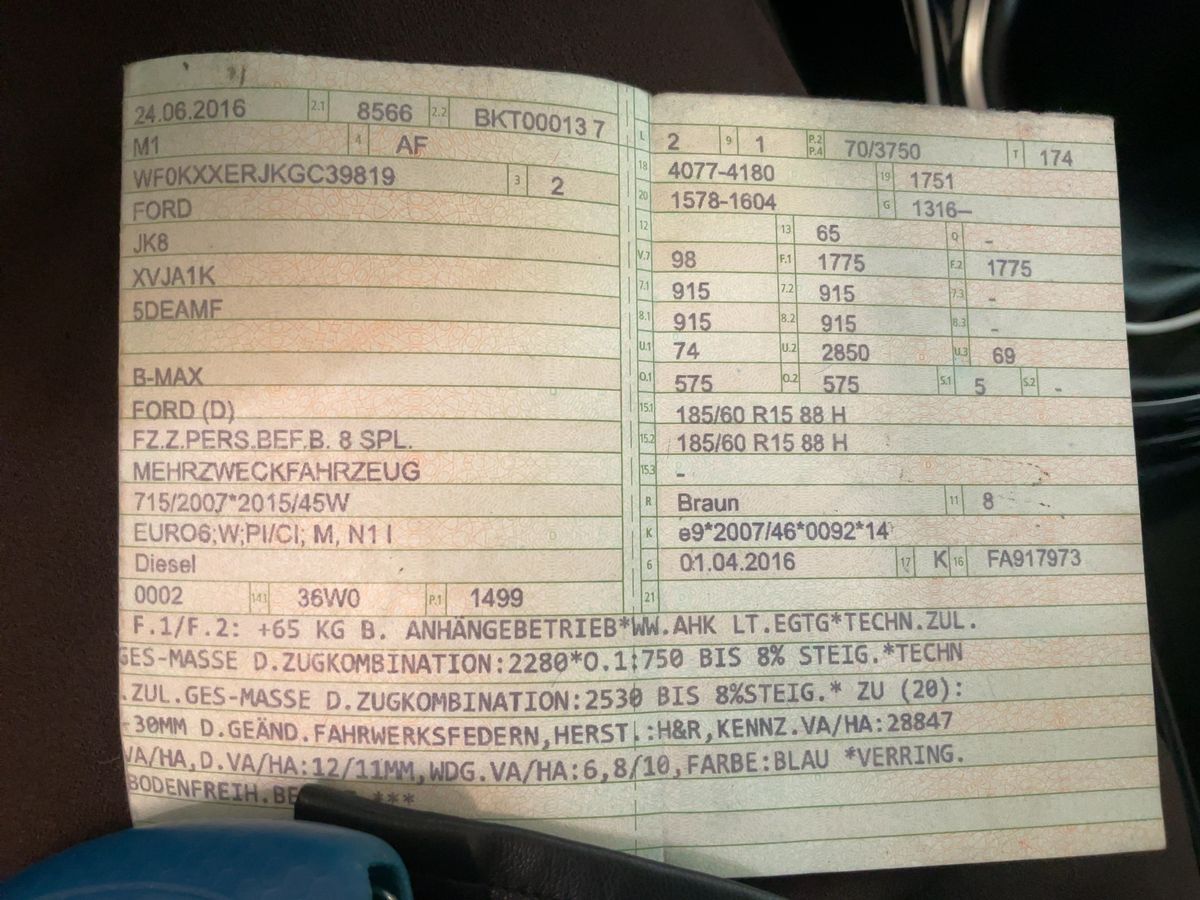 24.06.2016 2.1 8566 2.2 BKT00013 7
M1 4 AF
WF0KXXERJKGC39819 3 2
FORD
JK8
XVJA1K
5DEAMF
B-MAX
FORD (D)
FZ.Z.PERS.BEF.B. 8 SPL.
MEHRZWECKFAHRZEUG
715/2007*2015/45W
EURO6;W;PI/CI; M, N1 I
Diesel
0002 14.1 36W0 P.1 1499
L 2 9 1 P.2 P.4 70/3750 T 174
18 4077-4180 19 1751
20 1578-1604 G 1316–
12 13 65 Q -
V.7 98 F.1 1775 F.2 1775
7.1 915 7.2 915 7.3 -
8.1 915 8.2 915 8.3 -
U.1 74 U.2 2850 U.3 69
O.1 575 O.2 575 S.1 5 S.2 -
15.1 185/60 R15 88 H
15.2 185/60 R15 88 H
15.3 -
R Braun 11 8
K e9*2007/46*0092*14
6 01.04.2016 17 K 16 FA917973
21
F.1/F.2: +65 KG B. ANHÄNGEBETRIEB*WW.AHK LT.EGTG*TECHN.ZUL.
GES-MASSE D.ZUGKOMBINATION:2280*O.1:750 BIS 8% STEIG.*TECHN
.ZUL.GES-MASSE D.ZUGKOMBINATION:2530 BIS 8%STEIG.* ZU (20):
-30MM D.GEÄND.FAHRWERKSFEDERN,HERST.:H&R,KENNZ.VA/HA:28847
VA/HA,D.VA/HA:12/11MM,WDG.VA/HA:6,8/10,FARBE:BLAU *VERRING.
BODENFREIH. ***